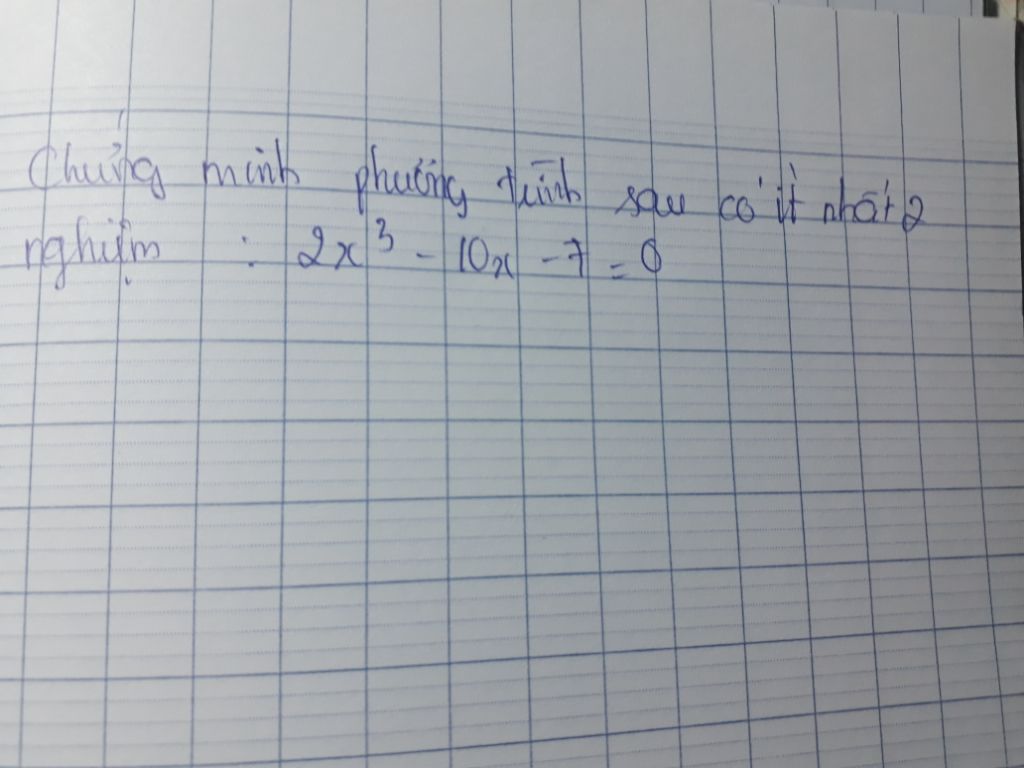 Chứng minh phương trình sau có ít nhất 2
nghiệm : 2x³ - 10x - 7 = 0